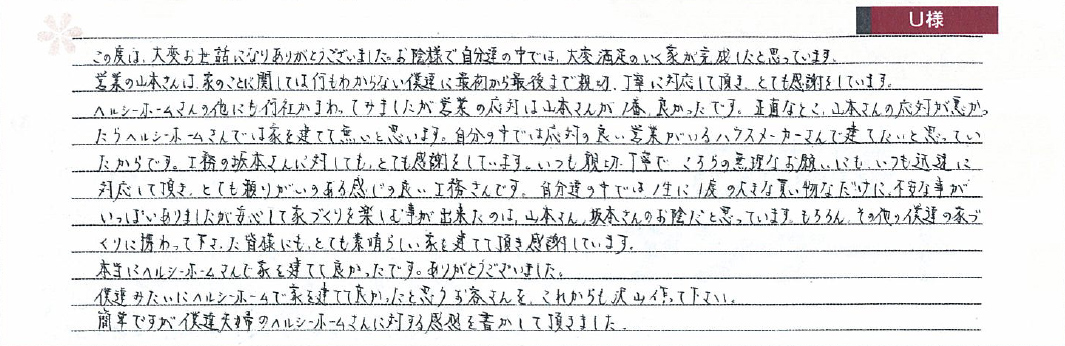 U様
この度は、大変お世話になりありがとうございました。お陰様で自分達の中では、大変満足のいく家が完成したと思っています。
営業の山本さんは、家のことに関しては何もわからない僕達に最初から最後まで親切、丁寧に対応して頂き、とても感謝をしています。
ヘルシーホームさんの他にも何社かまわってみましたが営業の応対は山本さんが1番、良かったです。正直なとこ、山本さんの応対が悪かっ
たらヘルシーホームさんでは家を建てて無いと思います。自分の中では応対の良い営業がいるハウスメーカーさんで建てたいと思ってい
たからです。工務の坂本さんに対しても、とても感謝をしています。いつも親切、丁寧で こちらの無理なお願いにも、いつも迅速に
対応して頂き、とても頼りがいのある感じの良い工務さんです。自分達の中では1生に1度の大きな買い物なだけに、不安な事が
いっぱいありましたが安心して家づくりを楽しむ事が出来たのは、山本さん、坂本さんのお陰だと思っています。もちろん、その他の僕達の家づ
くりに携わって下さった皆様にも、とても素晴らしい家を建てて頂き感謝しています。
本当にヘルシーホームさんで家を建てて良かったです。ありがとうございました。
僕達みたいにヘルシーホームで家を建てて良かったと思うお客さんを、これからも沢山作って下さい。
簡単ですが僕達夫婦のヘルシーホームさんに対する感想を書かして頂きました。